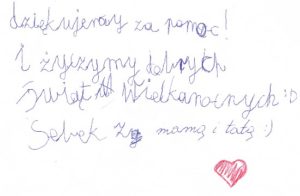 dziękujemy za pomoc!
I życzymy dobrych
Świąt Wielkanocnych :D
Sebek z mamą i tatą :)